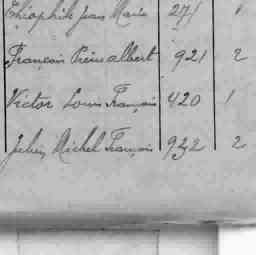 Théophile Jean Marie 271 1
François Pierre Albert 921 2
Victor Louis François 420 1
Julien Michel François 932 2